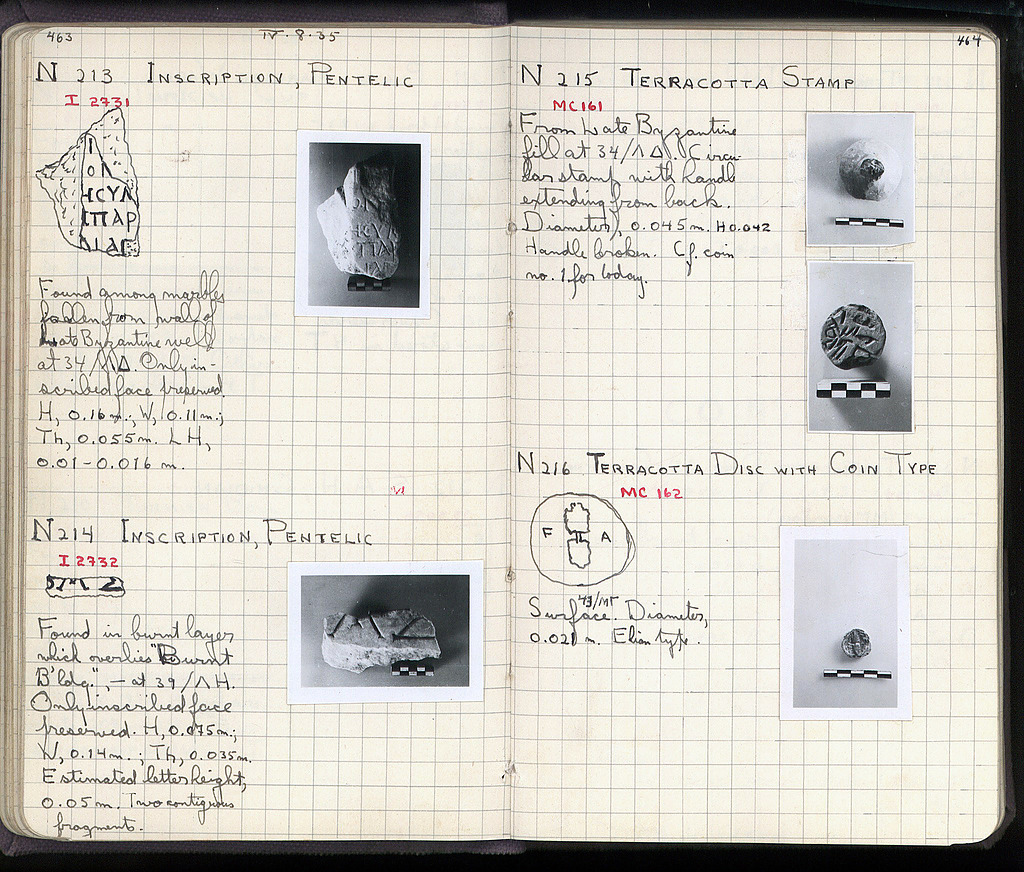 463
IV·8·35
N 213 INSCRIPTION, PENTELIC
I 2731
Ι
ΟΛ
ΗΣΥΛ
ΙΠΑΡ
ΛΙΑΓ
Found among marbles
fallen from wall of
Late Byzantine well
at 34/ΛΔ. Only in-
scribed face preserved.
H, 0.16 m.; W, 0.11 m.;
Th, 0.055 m. L H,
0.01-0.016 m.
N 214 INSCRIPTION, PENTELIC
I 2732
Found in burnt layer
which overlies "Burnt
B'ldg.", - at 39/ΛH.
Only inscribed face
preserved. H, 0.075 m.;
W, 0.14 m.; Th, 0.035 m.
Estimated letter height,
0.05 m. Two contiguous
fragments.
464
N 215 TERRACOTTA STAMP
MC161
From Late Byzantine
fill at 34/ΛΔ. Circu-
lar stamp with handle
extending from back.
Diameter, 0.045 m. H 0.042
Handle broken. Cf. coin
no. 1 for today.
N 216 TERRACOTTA DISC WITH COIN TYPE
MC 162
F A
43/ΜΓ
Surface. Diameter,
0.021 m. Elian type.